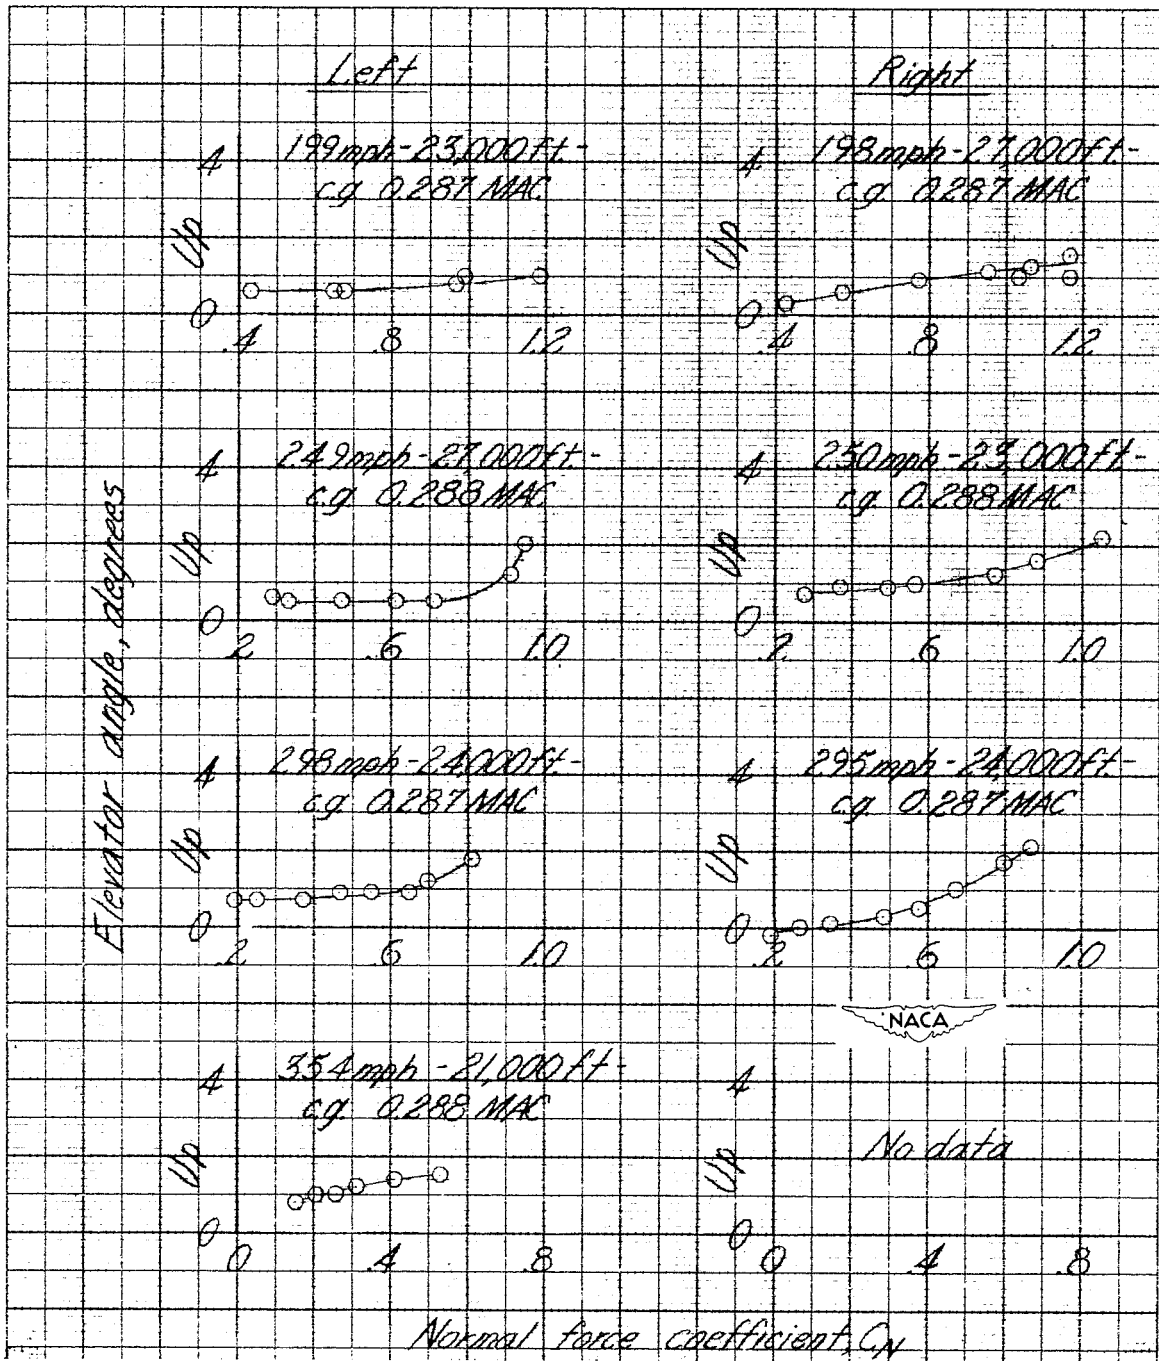 Left
Right
4
199mph-23,000ft-
c.g. 0.287 MAC
Up
0
.4 .8 1.2
4
198mph-27,000ft-
c.g. 0.287 MAC
Up
0
.4 .8 1.2
Elevator angle, degrees
4
249mph-27,000ft-
c.g. 0.288 MAC
Up
0
.2 .6 1.0
4
250mph-23,000ft-
c.g. 0.288 MAC
Up
0
.2 .6 1.0
4
298mph-24,000ft-
c.g. 0.287 MAC
Up
0
.2 .6 1.0
4
295mph-24,000ft-
c.g. 0.287 MAC
Up
0
.2 .6 1.0
NACA
4
354mph-21,000ft-
c.g. 0.288 MAC
Up
0
0 .4 .8
4
No data
Up
0
0 .4 .8
Normal force coefficient, CN